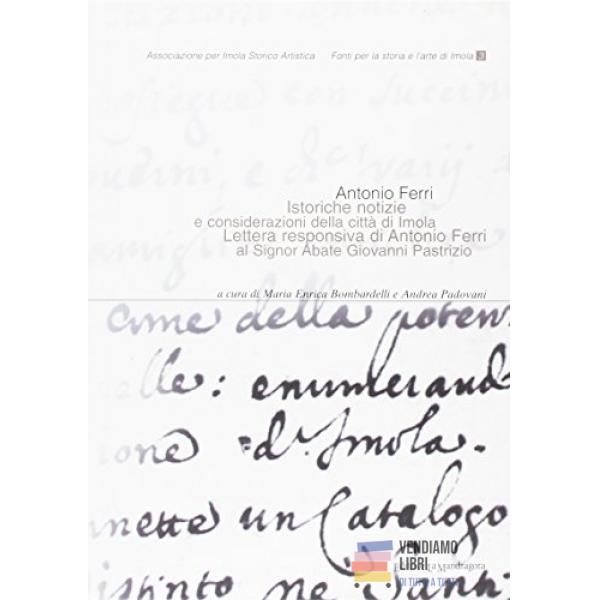 Associazione per Imola Storico Artistica Fonti per la storia e l'arte di Imola 3
Antonio Ferri
Istoriche notizie
e considerazioni della città di Imola
Lettera responsiva di Antonio Ferri
al Signor Abate Giovanni Pastrizio
a cura di Maria Enrica Bombardelli e Andrea Padovani
cime della poten
elle: enumerand
ione d'Imola.
nette un Catalogo
VENDIAMO
LIBRI La Mandragora
DI TUTTI A TUTTI
istinto ne Santi